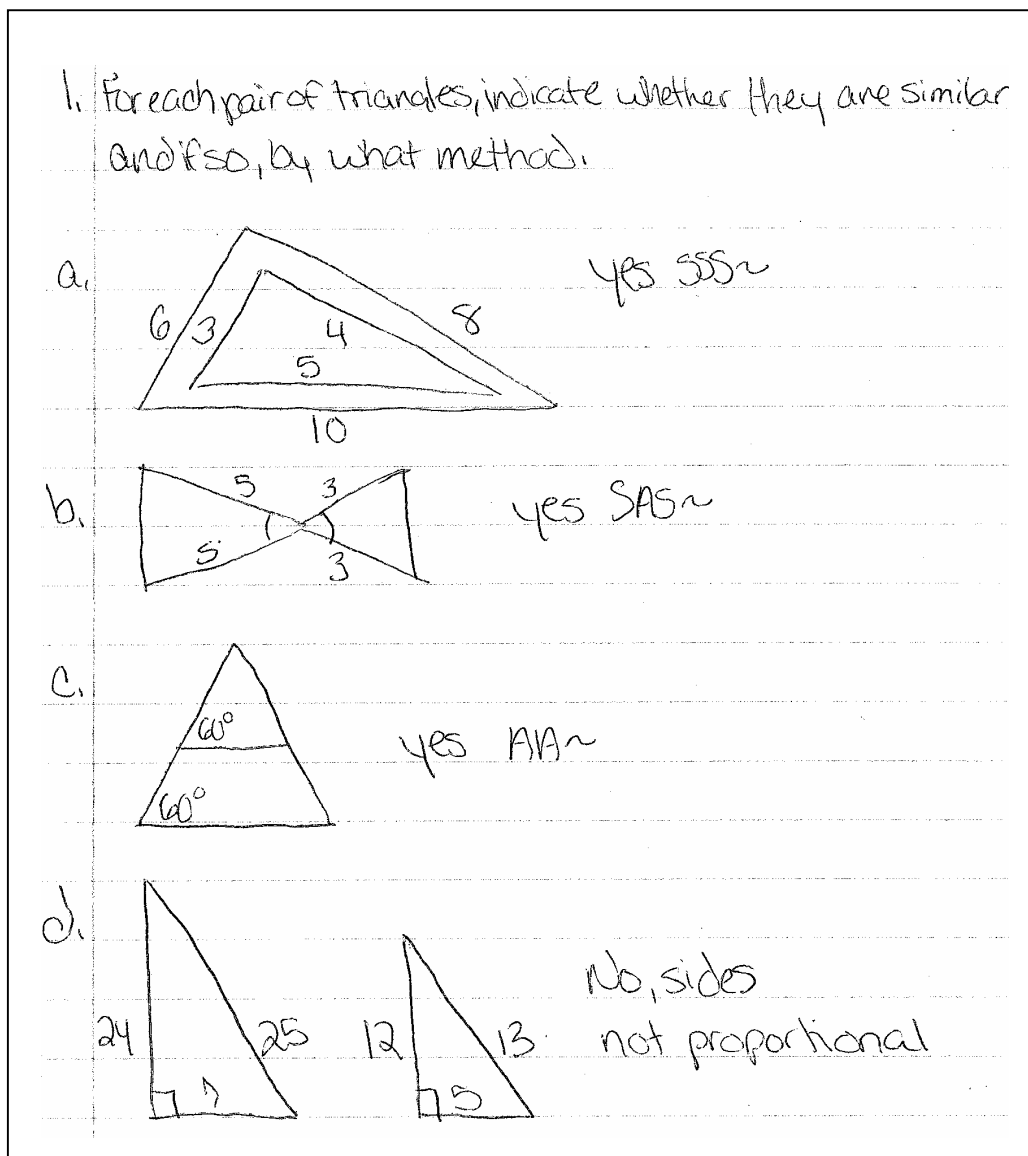 1. For each pair of triangles, indicate whether they are similar
and if so, by what method.
a.
6 3 4 8
5
10
yes SSS~
b.
5 3
5 3
yes SAS~
c.
60°
60°
yes AA~
d.
24 25 7
12 13 5
No, sides
not proportional